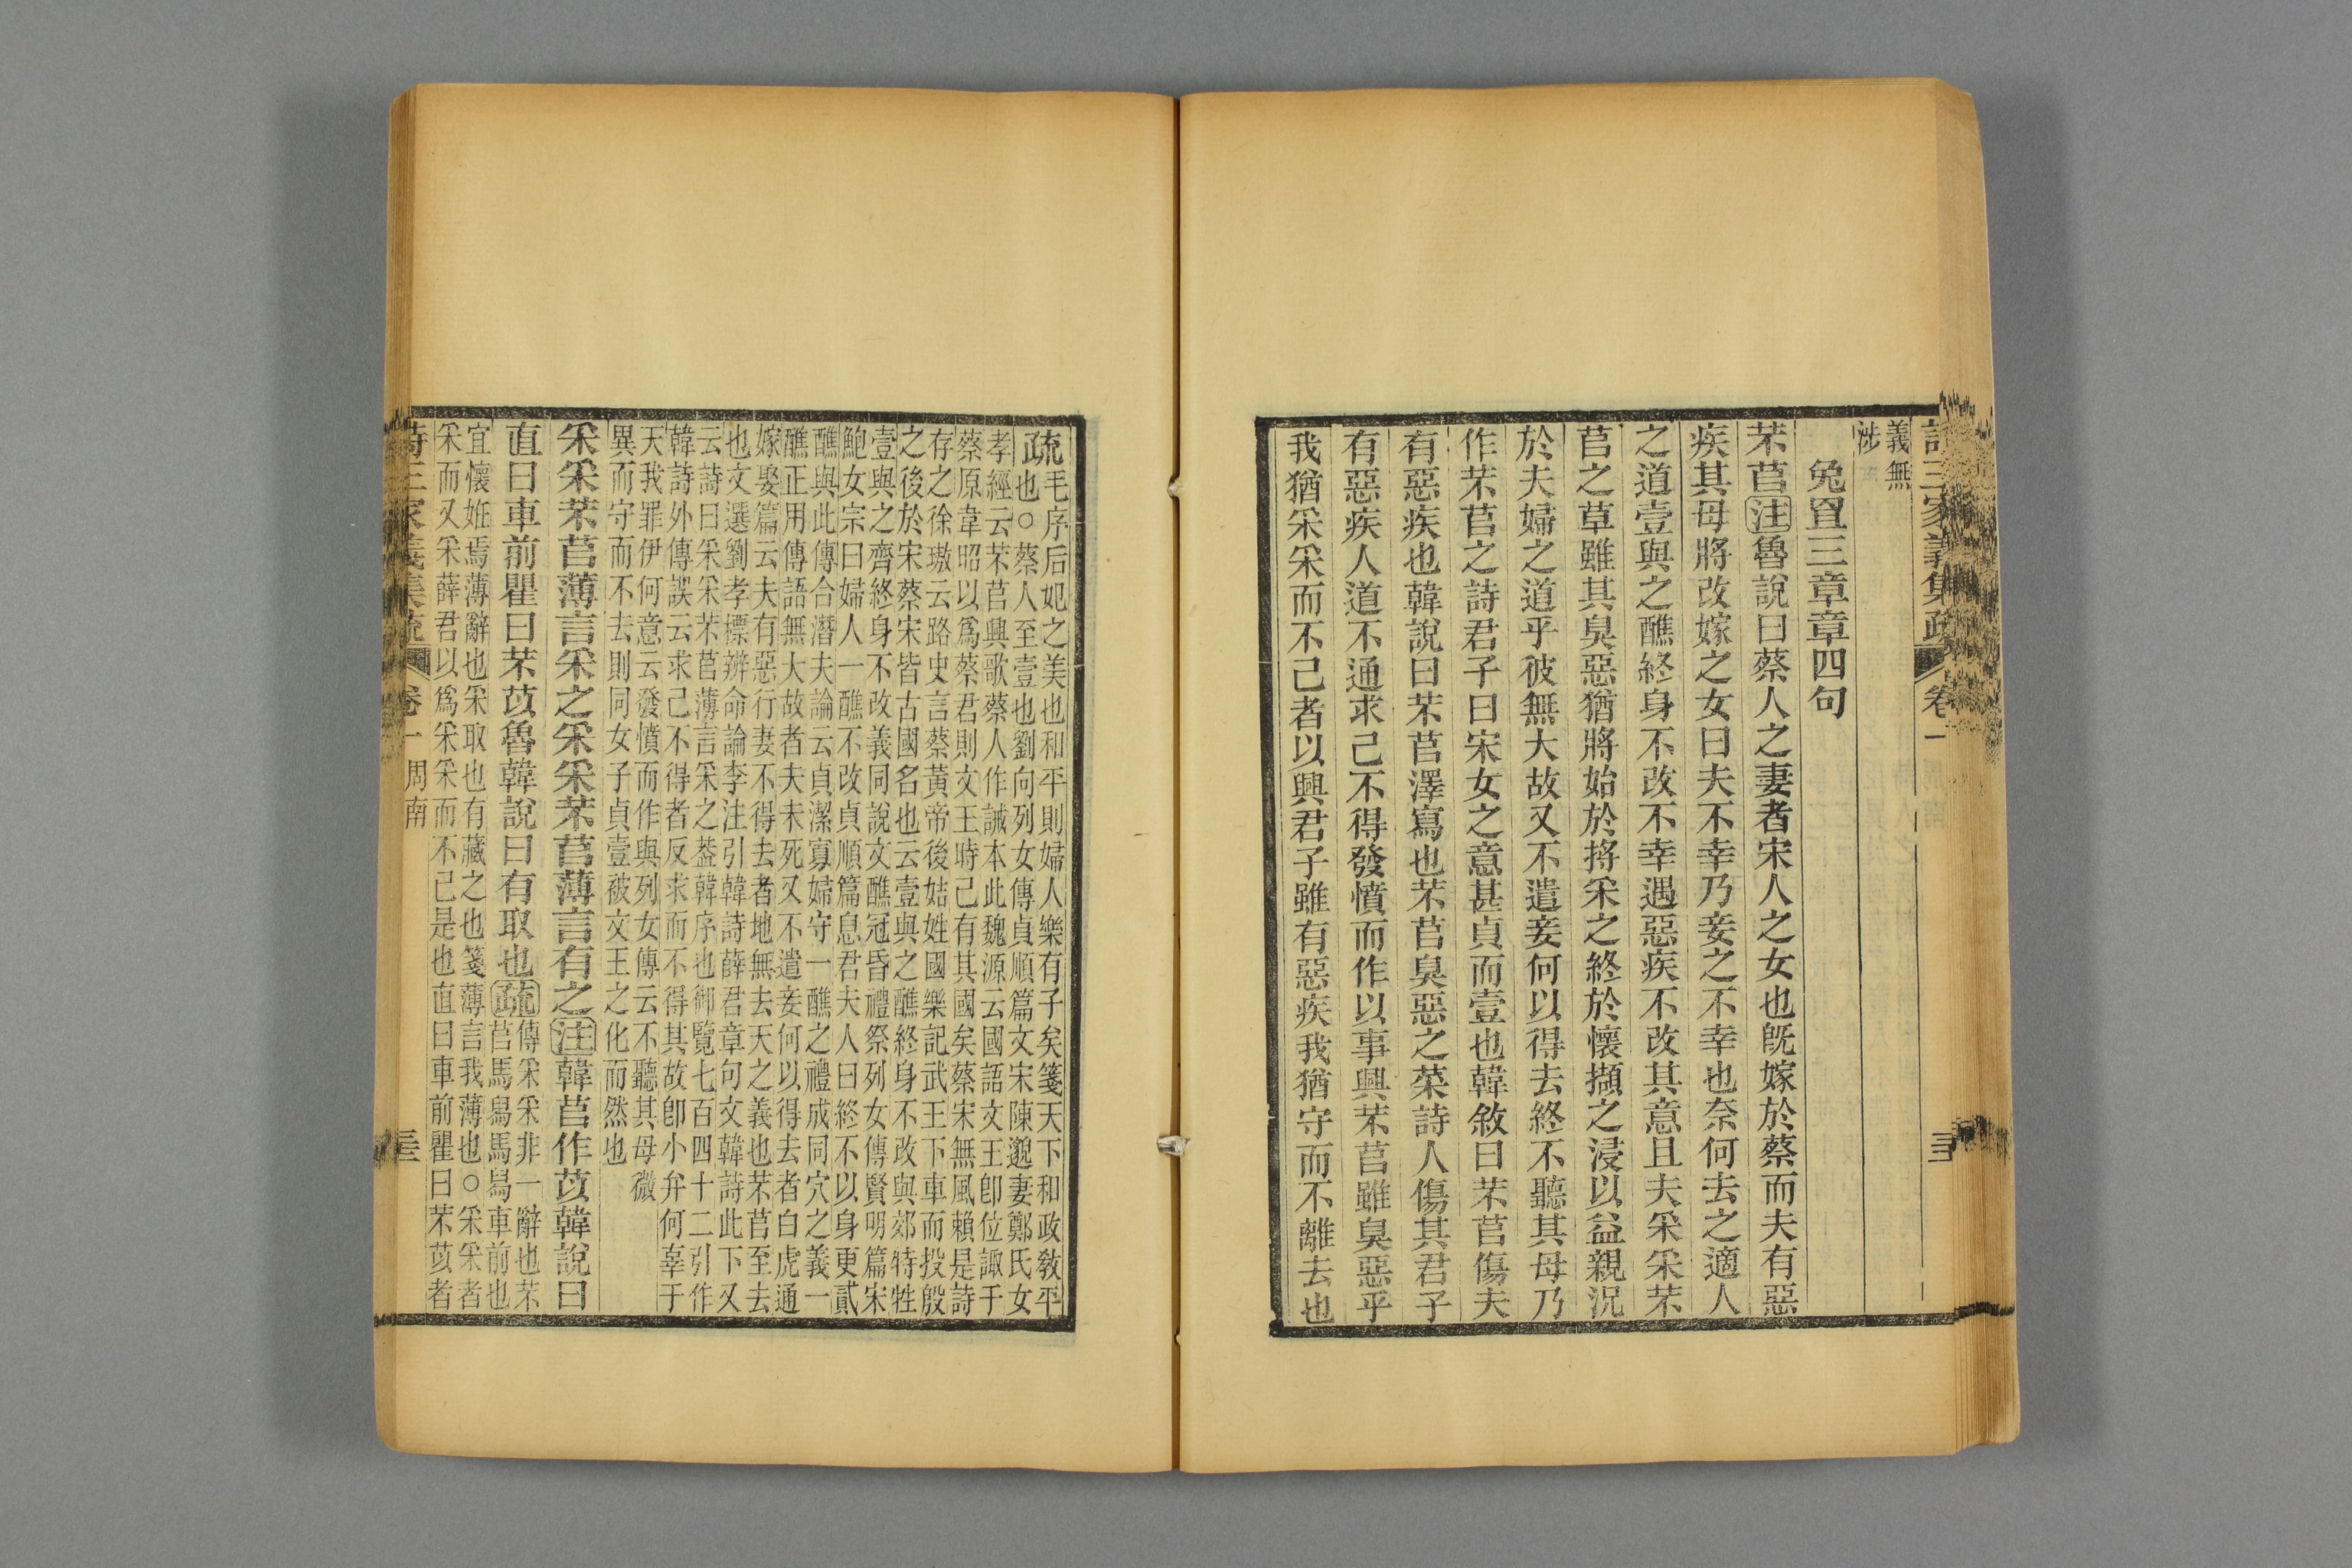 詩三家義集疏 卷一
義無
涉
兔罝三章章四句
芣苢注魯說曰蔡人之妻者宋人之女也旣嫁於蔡而夫有惡
疾其母將改嫁之女曰夫不幸乃妾之不幸也奈何去之適人
之道壹與之醮終身不改不幸遇惡疾不改其意且夫采采芣
苢之草雖其臭惡猶將始於捋采之終於懷擷之浸以益親況
於夫婦之道乎彼無大故又不遣妾何以得去終不聽其母乃
作芣苢之詩君子曰宋女之意甚貞而壹也韓敘曰芣苢傷夫
有惡疾也韓說曰芣苢澤寫也芣苢臭惡之菜詩人傷其君子
有惡疾人道不通求己不得發憤而作以事興芣苢雖臭惡乎
我猶采采而不已者以興君子雖有惡疾我猶守而不離去也
疏毛序后妃之美也和平則婦人樂有子矣箋天下和政敎平
也○蔡人至壹也劉向列女傳貞順篇文宋陳邈妻鄭氏女
孝經云芣苢興歌蔡人作誡本此魏源云國語文王卽位諏于
蔡原韋昭以爲蔡君則文王時已有其國矣蔡宋無風賴是詩
存之徐璈云路史言蔡黃帝後姞姓國樂記武王下車而投殷
之後於宋蔡宋皆古國名也云壹與之醮終身不改與郊特牲
壹與之齊終身不改義同說文醮冠昏禮祭列女傳賢明篇宋
鮑女宗曰婦人一醮不改貞順篇息君夫人曰終不以身更貳
醮與此傳合潛夫論云貞潔寡婦守一醮之禮成同穴之義一
醮正用傳語無大故者夫未死又不遣妾何以得去者白虎通
嫁娶篇云夫有惡行妻不得去者地無去天之義也芣苢至去
也文選劉孝標辨命論李注引韓詩薛君章句文韓詩此下又
云詩曰采采芣苢薄言采之葢韓序也御覽七百四十二引作
韓詩外傳誤云求己不得者反求而不得其故卽小弁何辜于
天我罪伊何意云發憤而作與列女傳云不聽其母微
異而守而不去則同女子貞壹被文王之化而然也
采采芣苢薄言采之采采芣苢薄言有之注韓苢作苡韓說曰
直曰車前瞿曰芣苡魯韓說曰有取也疏傳采采非一辭也芣
苢馬舄馬舄車前也
宜懷妊焉薄辭也采取也有藏之也箋薄言我薄也○采采者
采而又采薛君以爲采采而不已是也直曰車前瞿曰芣苡者
詩三家義集疏 卷一 周南